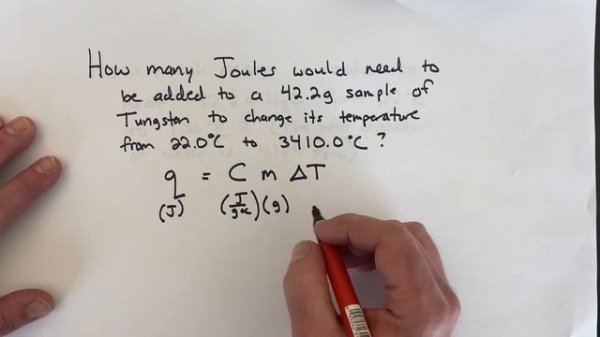 How many Joules would need to
be added to a 42.2g sample of
Tungsten to change its temperature
from 22.0°C to 3410.0°C ?
q = C m ΔT
(J) (J/g°C)(g)